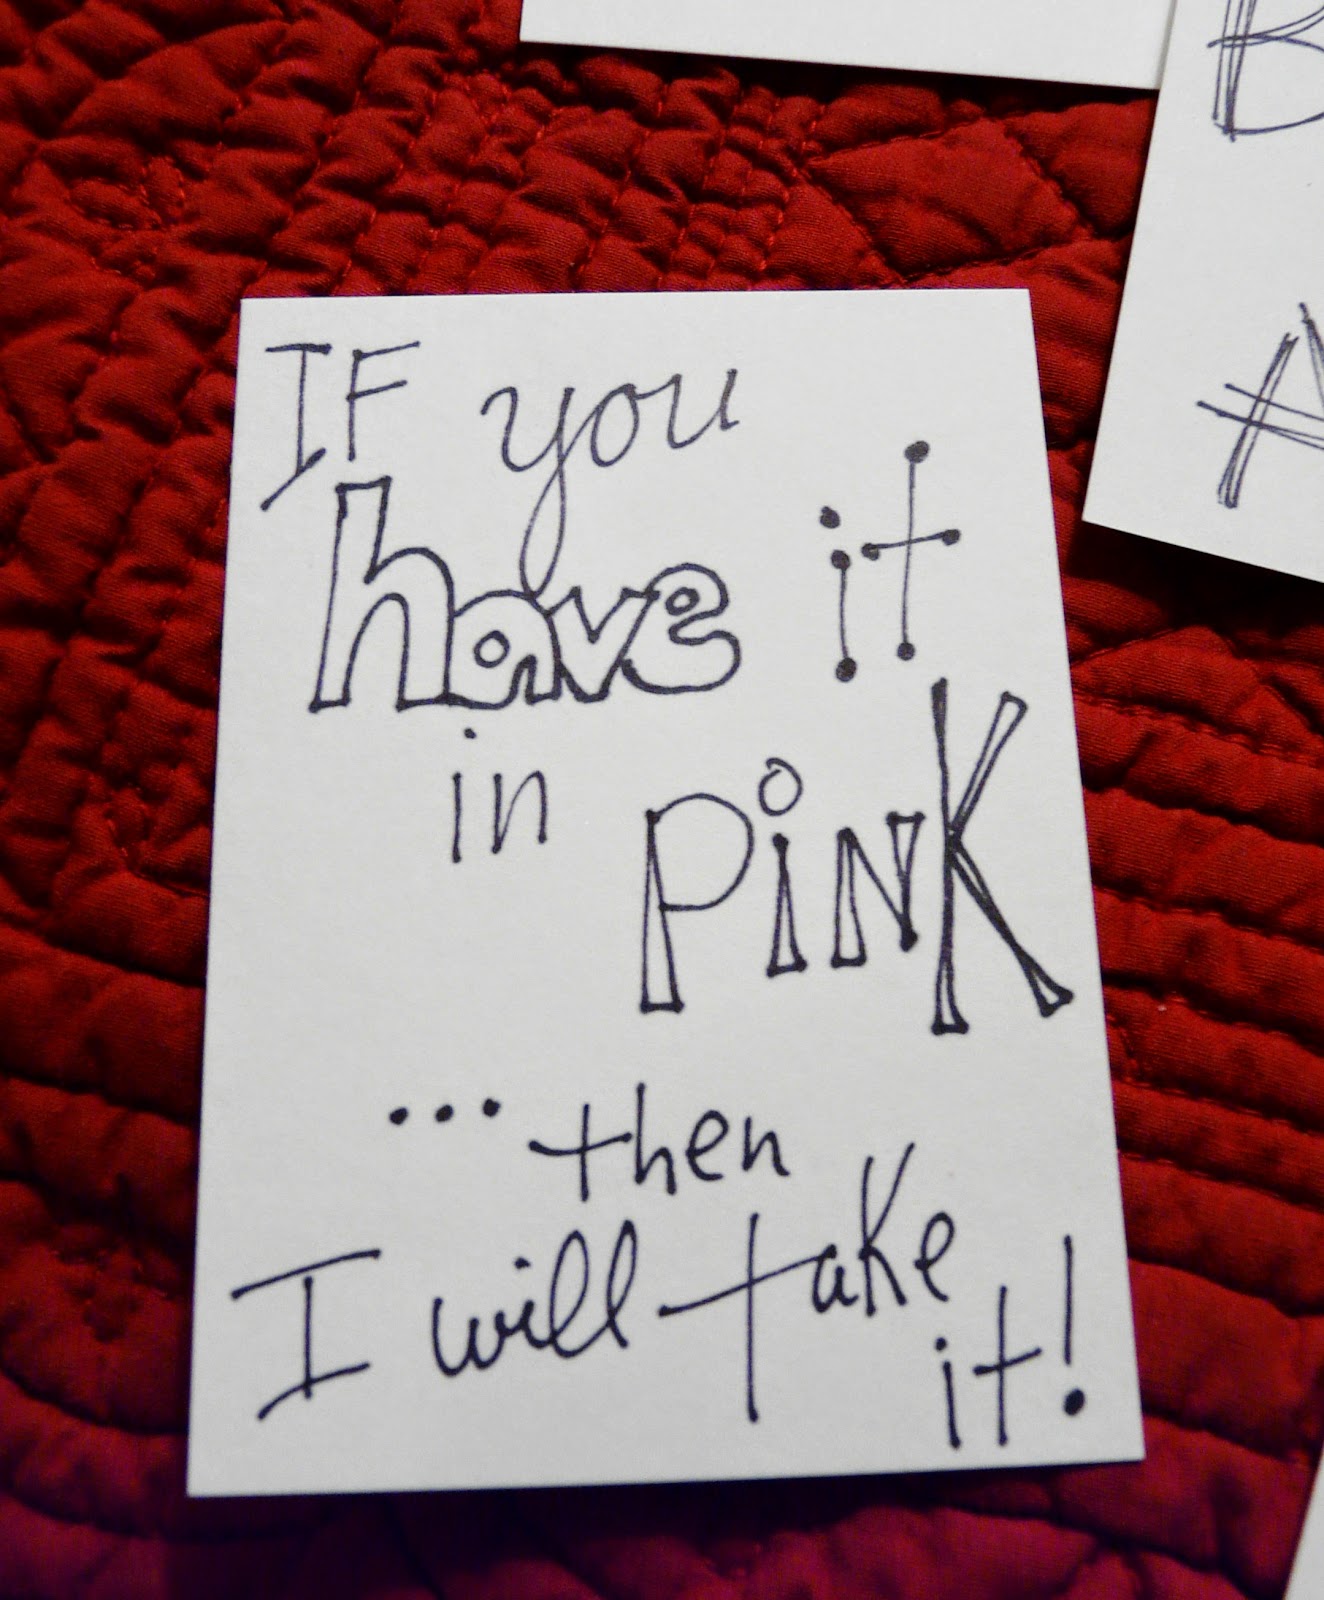 IF you
have it
in PiNK
...then
I will take
it!
B
A